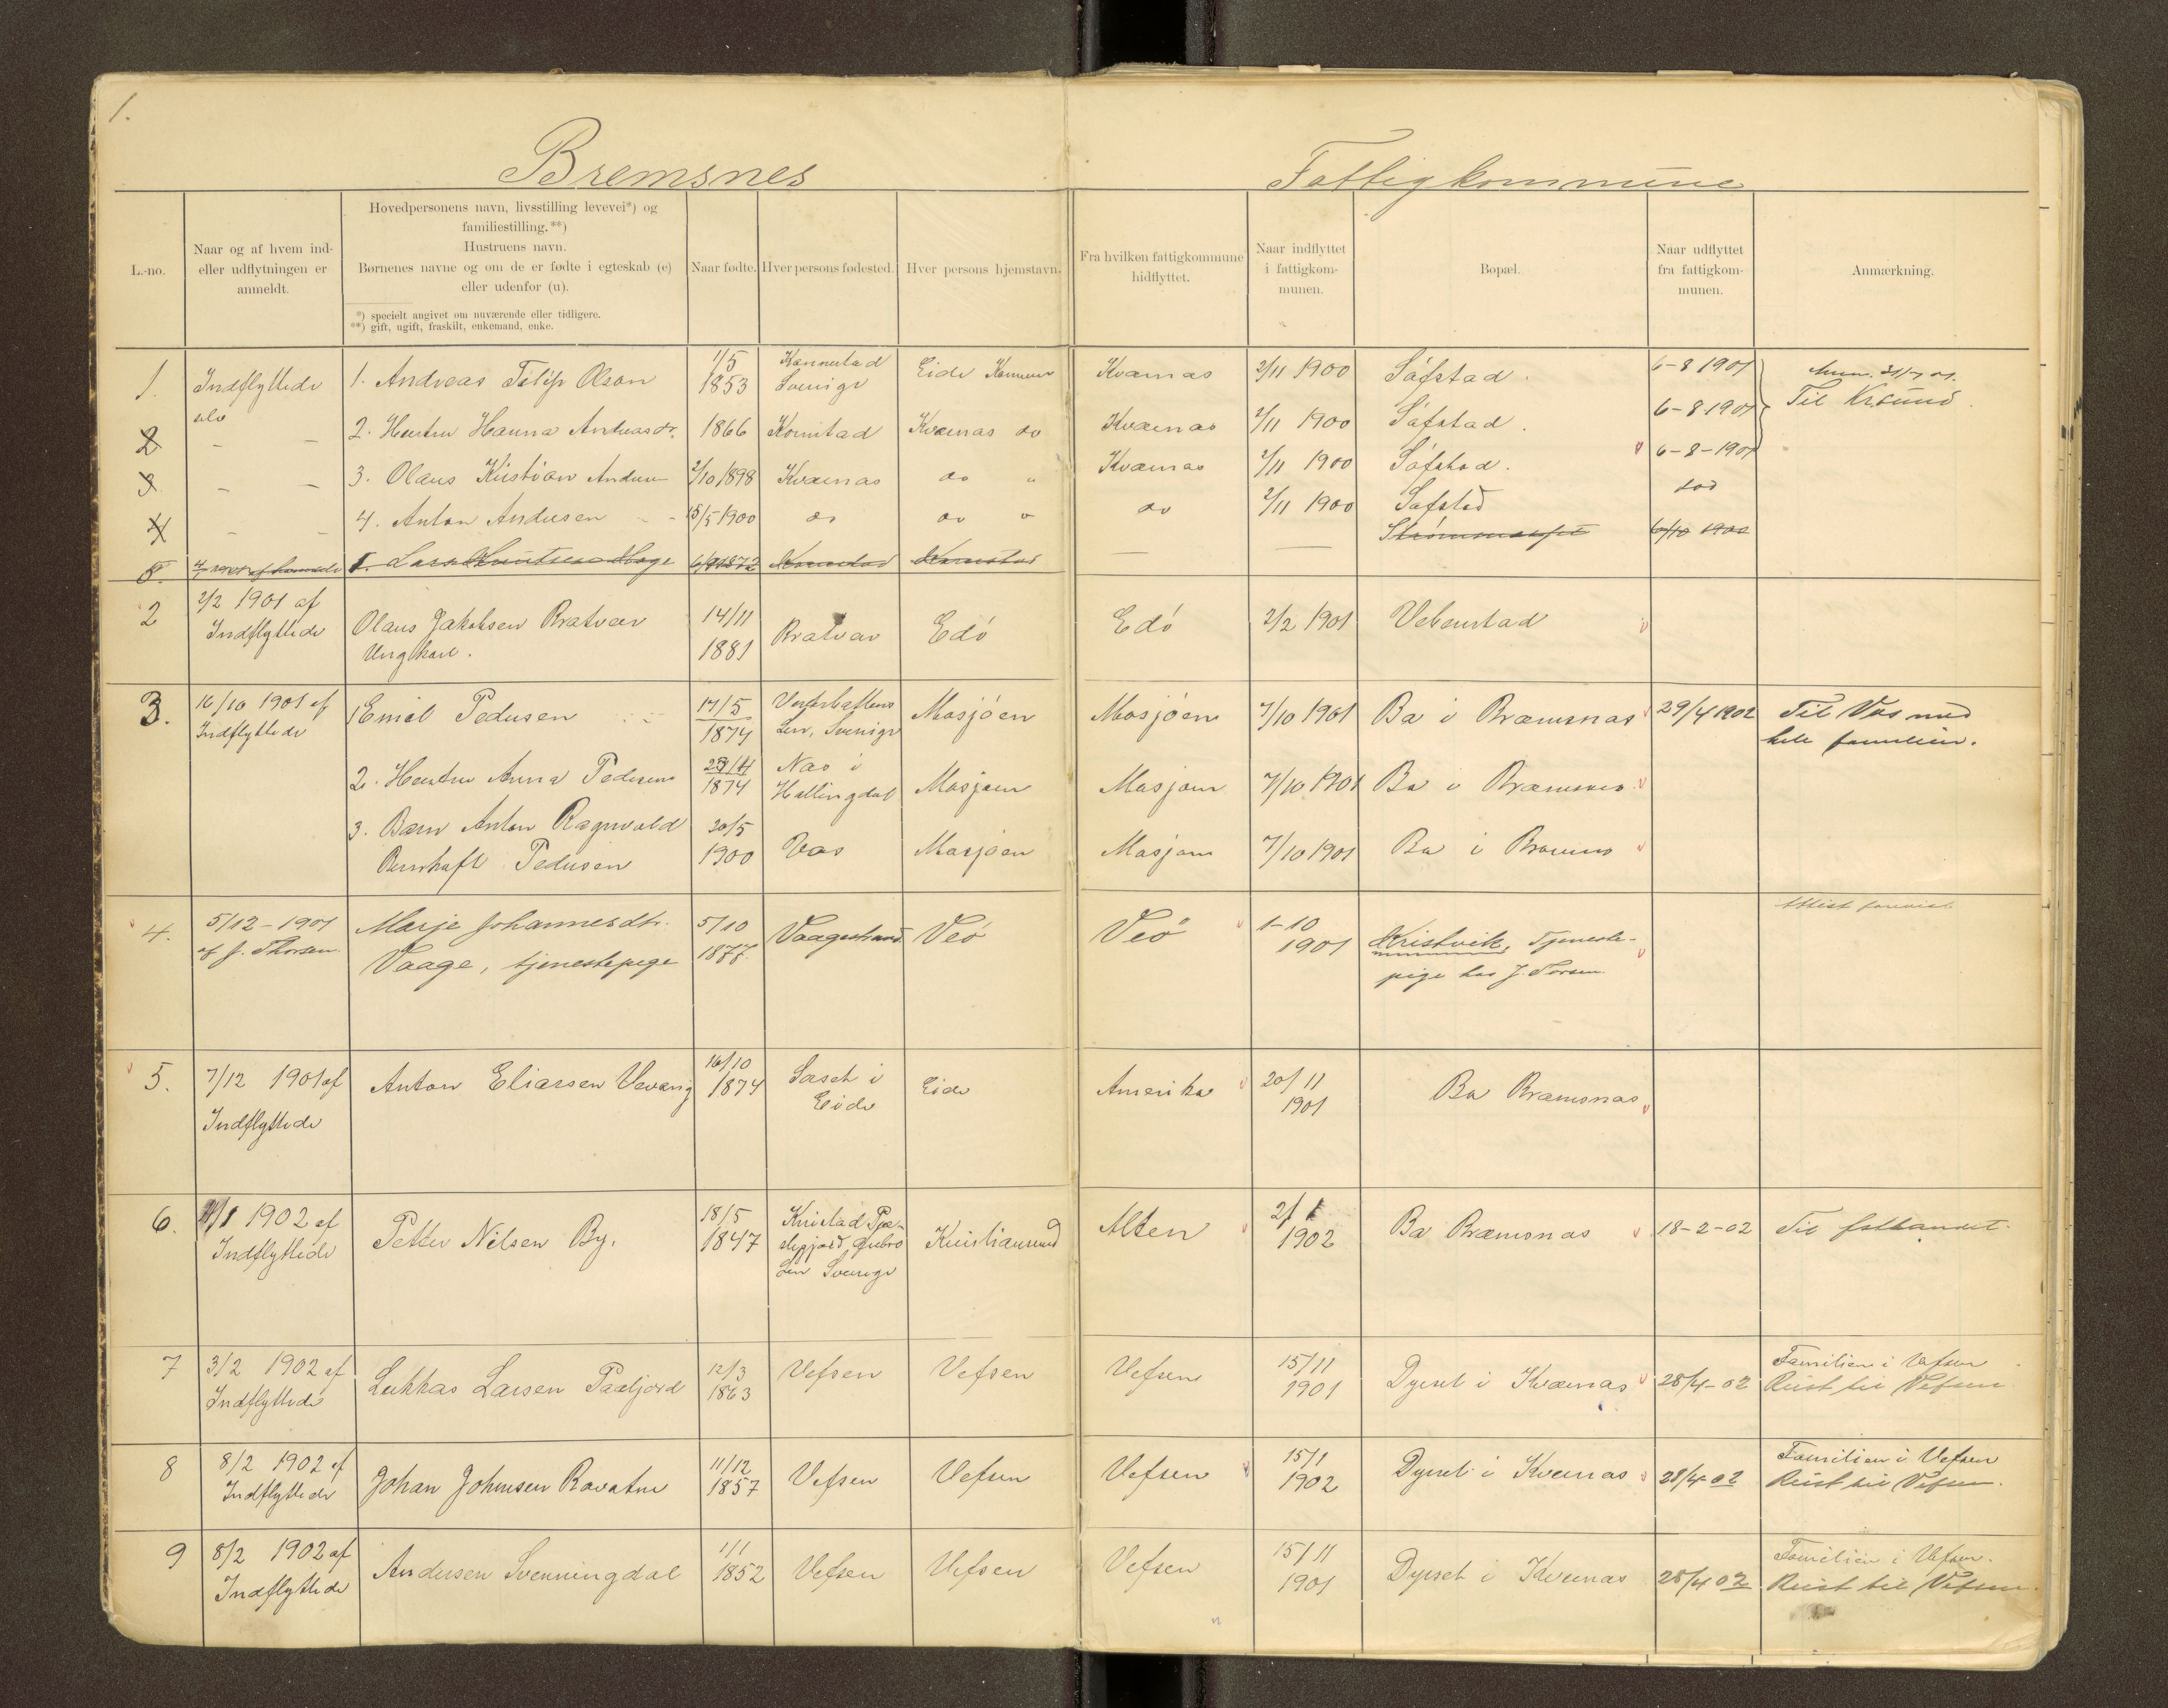 1.
Bremsnes
Fattigkommune
L.-no.
Naar og af hvem ind-
eller udflytningen er
anmeldt.
Hovedpersonens navn, livsstilling levevei*) og
familiestilling.**)
Hustruens navn.
Børnenes navne og om de er fødte i egteskab (e)
eller udenfor (u).
*) specielt angivet om nuværende eller tidligere.
**) gift, ugift, fraskilt, enkemand, enke.
Naar fødte.
Hver persons fødested.
Hver persons hjemstavn.
Fra hvilken fattigkommune
hidflyttet.
Naar indflyttet
i fattigkom-
munen.
Bopæl.
Naar udflyttet
fra fattigkom-
munen.
Anmærkning.
1. Indflyttede 1. Andreas Filip Olson 1/5 1853 Sverige Eide Kværnæs 2/11 1900 Søfstad. 6-8 1901
Til Krsund.
2 2. Hustru Hanna Andreasdr. 1866 Kornstad Kværnæs do Kværnæs 2/11 1900 Søfstad. 6-8-1901
3 3. Olaus Kristian Andersen 2/10 1898 Kværnæs do " Kværnæs 2/11 1900 Søfstad. 6-8-1901
4 4. Anton Andersen 15/5 1900 do do " do 2/11 1900 Søfstad død
5. Lars Knutsen 1872 Kornstad Kornstad 6/10 1900
2 2/2 1901 af
Indflyttede
Olaus Jakobsen Bratvær
Ungkarl.
14/11
1881
Bratvær Edø Edø 2/2 1901 Vebenstad
3. 16/10 1901 af
Indflyttede
1 Emil Pedersen 17/5
1874
Len, Sverige
Mosjøen Mosjøen 7/10 1901 Ba i Bræmsnæs 29/4 1902 Til Vos med
hele familien.
2. Hustru Anna Pedersen
1874
Næs i
Hallingdal
Mosjøen Mosjøen 7/10 1901 Ba i Bræmsnæs
3. Barn Anton Ragnvald
Pedersen
20/5
1900
Vos Mosjøen Mosjøen 7/10 1901 Ba i Bræmsnæs
4. 5/12-1901
af J. Thorsen
Marje Johannesdtr.
Vaage, tjenestepige
5/10
1877.
Vaagestrand Veø Veø 1-10
1901
Kristvik, Tjeneste-
pige hos J. Torsen
5. 7/12 1901 af
Indflyttede
Anton Eliassen Vevang 16/10
1874
i
Eide
Eide Amerika 20/11
1901
Ba Bræmsnæs
6. 1902 af
Indflyttede
Petter Nilsen By. 18/5
1847
Len Sverige
Kristiansund Alten 2/1
1902
Ba Bræmsnæs 18-2-02 Til
7 3/2 1902 af
Indflyttede
Lukkas Larsen Paaljord 12/3
1863
Vefsen Vefsen Vefsen 15/11
1901
Dyrset i Kværnæs 28/4-02 Familien i Vefsen
Reist til Vefsen
8 8/2 1902 af
Indflyttede
Johan Johnsen Ravatne 11/12
1857
Vefsen Vefsen Vefsen 15/1
1902
Dyrset i Kværnæs 28/4 02 Familien i Vefsen
Reist til Vefsen.
9 8/2 1902 af
Indflyttede
Andersen Svenningdal 1/1
1852
Vefsen Vefsen Vefsen 15/11
1901
Dyrset i Kværnæs 28/4 02 Familien i Vefsen.
Reist til Vefsen.